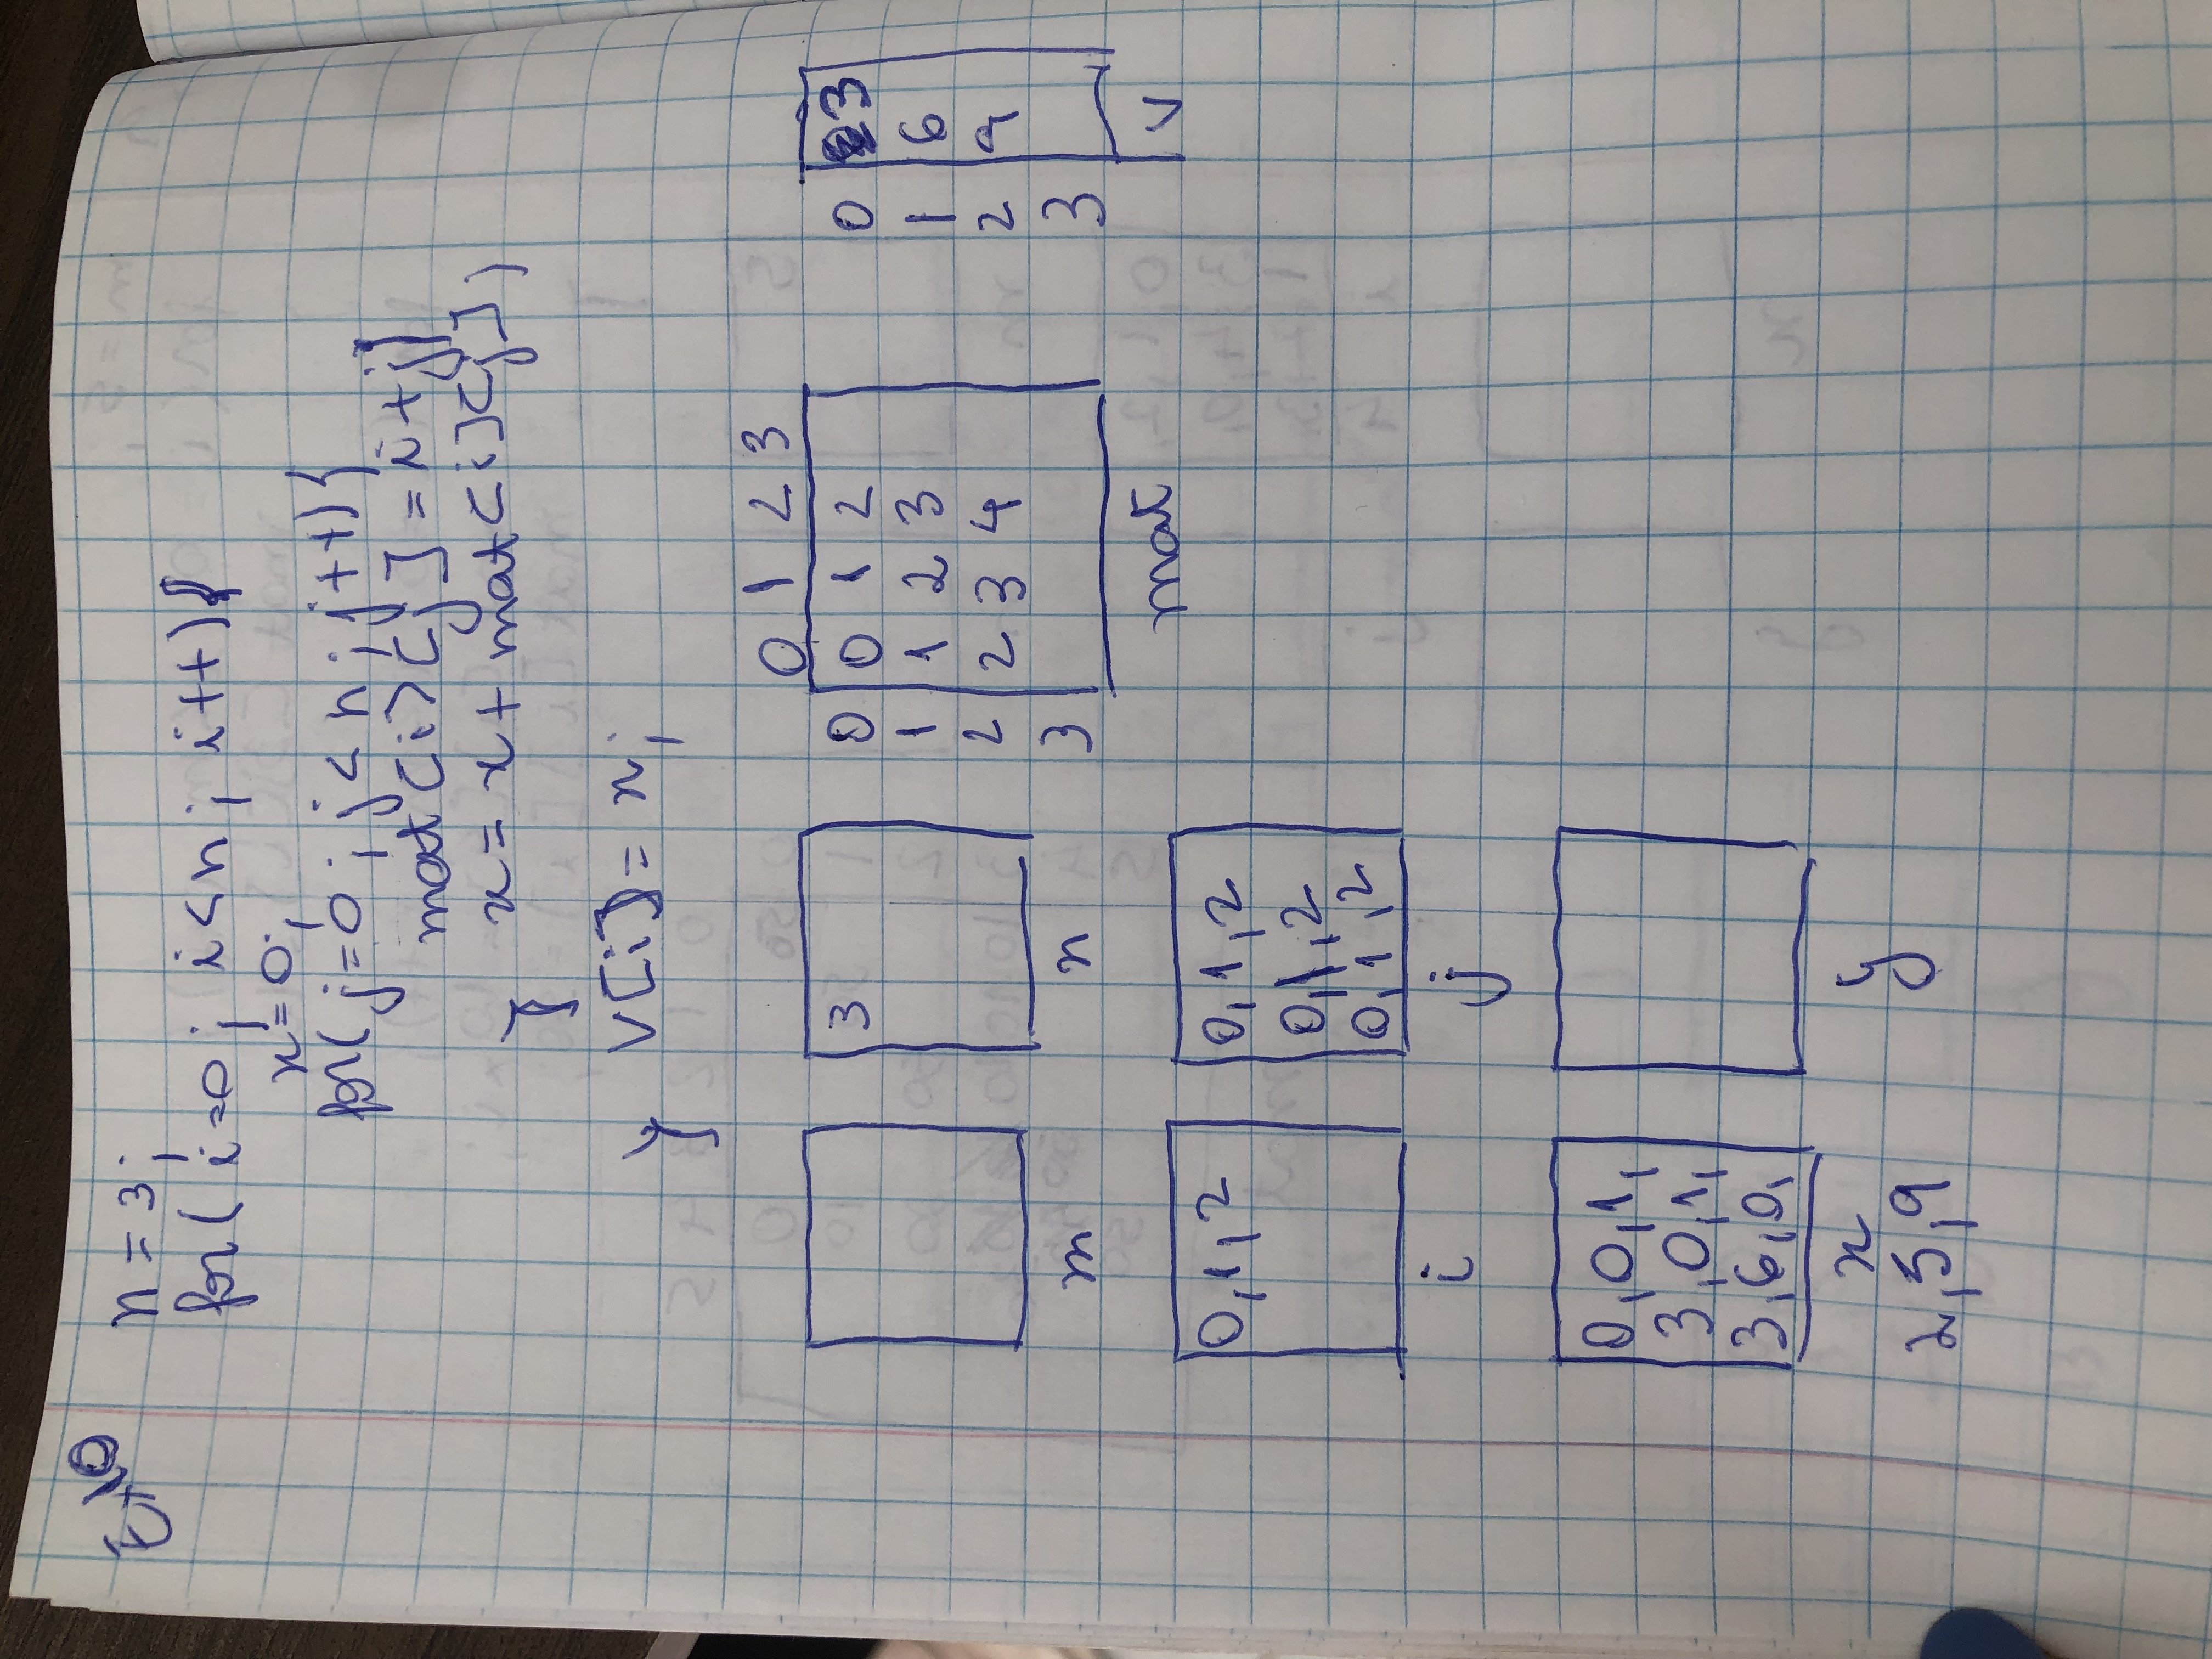 Ex10
n = 3;
for( i=0; i<n; i++){
x=0;
for( j=0; j<n; j++){
mat[i][j] = i+j;
x = x + mat[i][j];
}
V[i] = x;
}
0 1 2 3
3
0 0 1 2
1 1 2 3
2 2 3 4
3
0 3
1 6
2 9
3
m
n
mat
V
0,1,2
0,1,2
0,1,2
0,1,2
i
j
0,0,1,
3,0,1,
3,6,0,
x
y
2,5,9